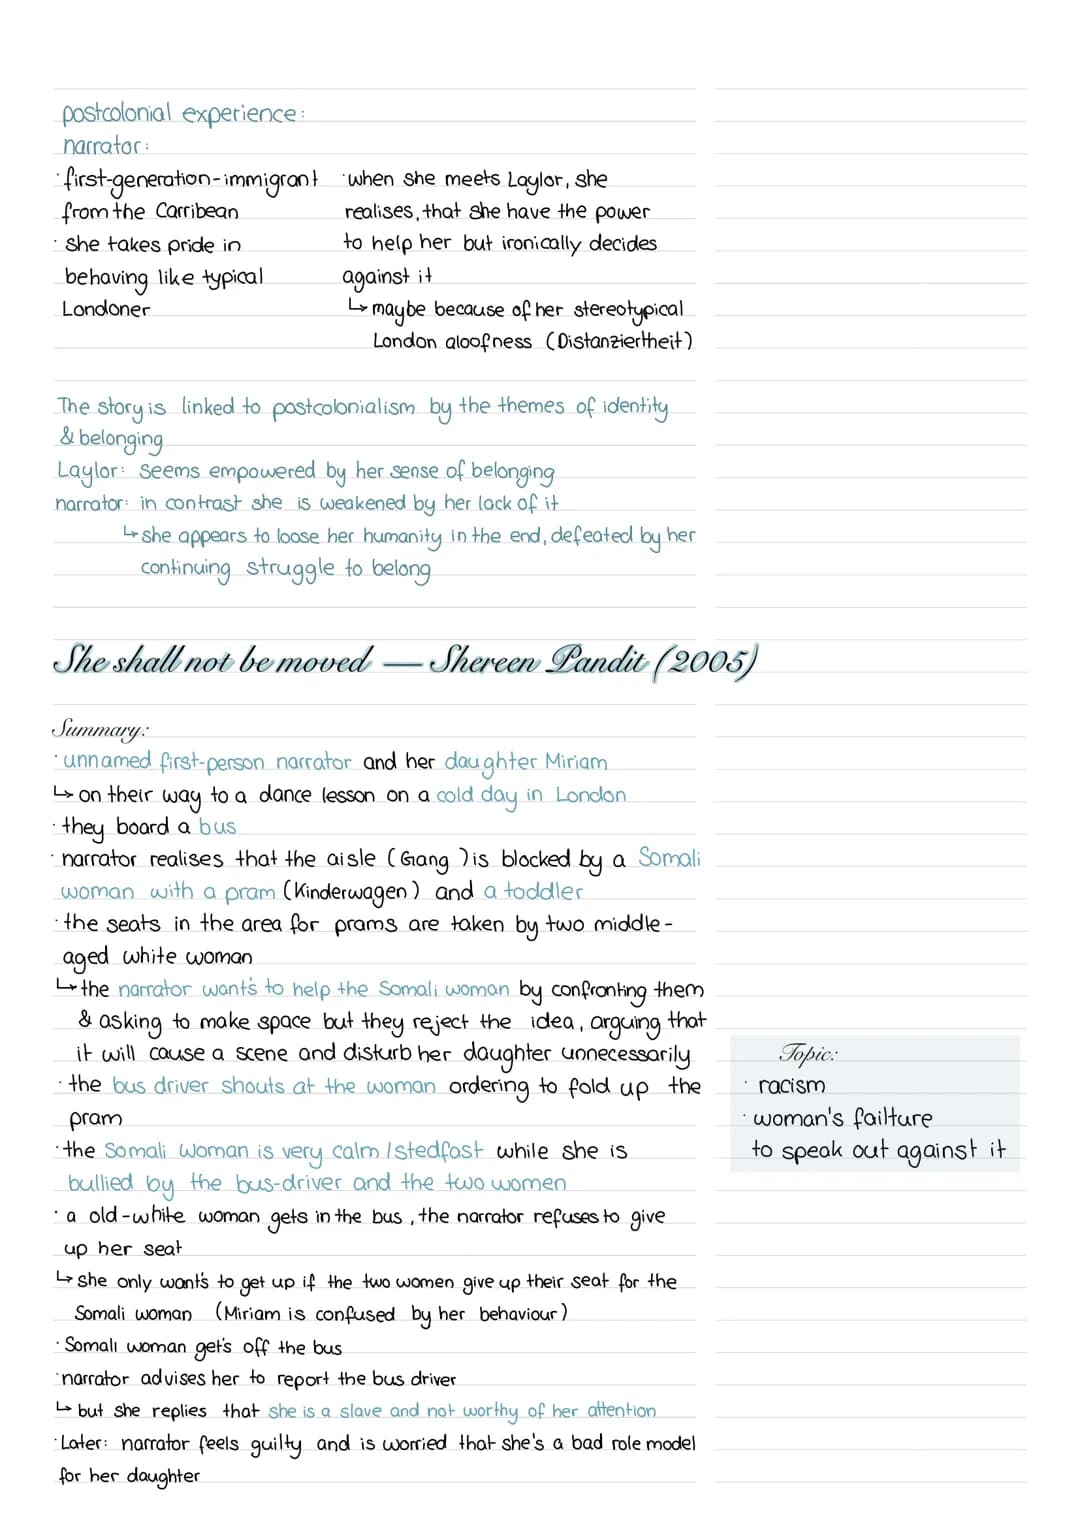 postcolonial experience:
narrator:
· first-generation-immigrant
from the Carribean
· she takes pride in
behaving like typical
Londoner
· when she meets Laylor, she
realises, that she have the power
to help her but ironically decides
against it
↳ maybe because of her stereotypical
London aloofness (Distanziertheit)
The story is linked to postcolonialism by the themes of identity
& belonging
Laylor: seems empowered by her sense of belonging
narrator: in contrast she is weakened by her lack of it
↳ she appears to loose her humanity in the end, defeated by her
continuing struggle to belong
She shall not be moved — Shereen Pandit (2005)
Summary:
· unnamed first-person narrator and her daughter Miriam
↳ on their way to a dance lesson on a cold day in London
· they board a bus
· narrator realises that the aisle (Gang) is blocked by a Somali
woman with a pram (Kinderwagen) and a toddler
· the seats in the area for prams are taken by two middle-
aged white woman
↳ the narrator want's to help the Somali woman by confronting them
& asking to make space but they reject the idea, arguing that
it will cause a scene and disturb her daughter unnecessarily
· the bus driver shouts at the woman ordering to fold up the
pram
· the Somali woman is very calm/stedfast while she is
bullied by the bus-driver and the two women
· a old-white woman gets in the bus, the narrator refuses to give
up her seat
↳ she only want's to get up if the two women give up their seat for the
Somali woman (Miriam is confused by her behaviour)
· Somali woman get's off the bus
· narrator advises her to report the bus driver
↳ but she replies that she is a slave and not worthy of her attention
· Later: narrator feels guilty and is worried that she's a bad role model
for her daughter
Topic:
· racism
· woman's failture
to speak out against it